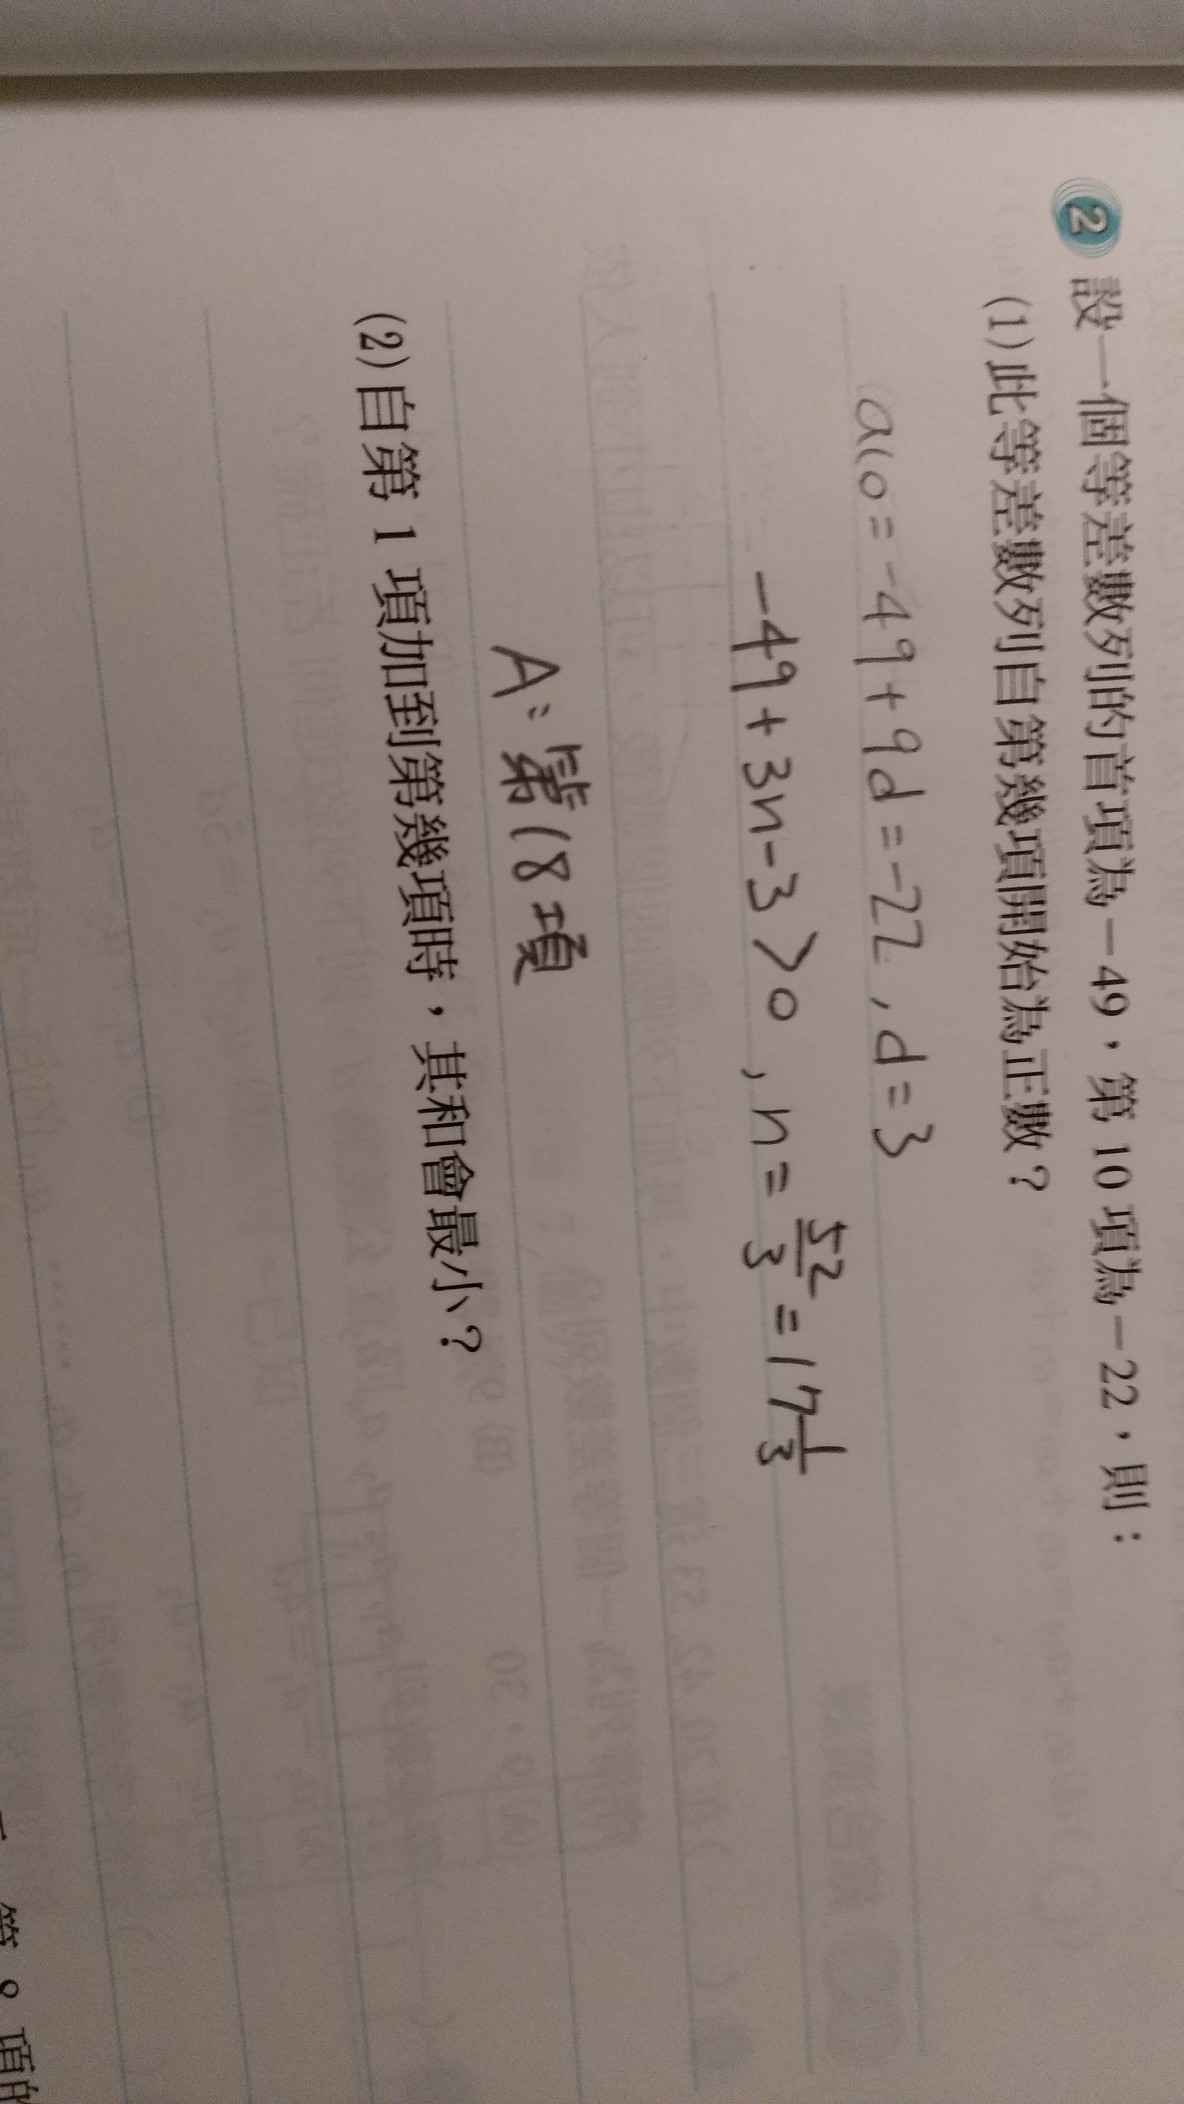 2 設一個等差數列的首項為－49，第 10 項為－22，則：
(1)此等差數列自第幾項開始為正數？
a10=-49+9d=-22,d=3
-49+3n-3>0,n=52/3=17 1/3
A:第18項
(2)自第 1 項加到第幾項時，其和會最小？
第 8 項的